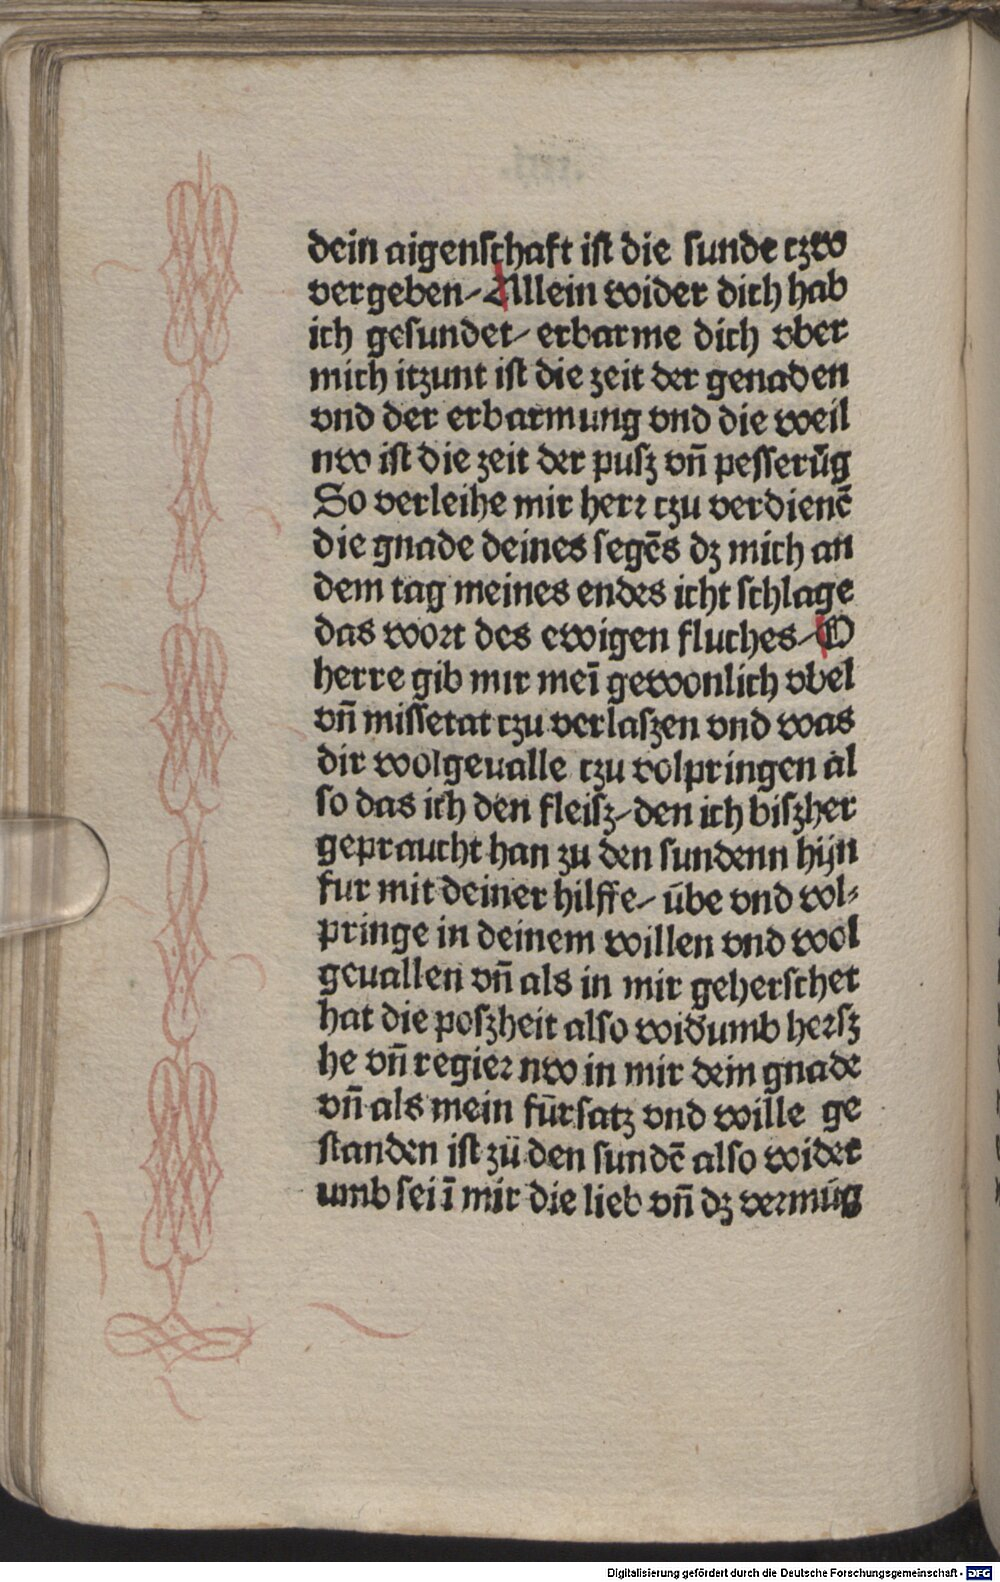 dein aigenschaft ist die sunde czw
vergeben⸗ Allein wider dich hab
ich gesundet⸗ erbarme dich vber
mich itzunt ist die zeit der genaden
vnd der erbarmung vnd die weil
nw ist die zeit der pusz vn̄ pesserūg
So verleihe mir herr czu verdienē
die gnade deines segēs dz mich an
dem tag meines endes icht schlage
das wort des ewigen fluches⸗ O
herre gib mir meī gewonlich vbel
vn̄ missetat czu verlaszen vnd was
dir wolgeualle czu volpringen al
so das ich den fleisz⸗ den ich biszher
gepraucht han zu den sundenn hijn
fur mit deiner hilffe⸗ ūbe vnd vol⸗
pringe in deinem willen vnd wol
geuallen vn̄ als in mir geherschet
hat die poszheit also widūmb hersz
he vn̄ regier nw in mir dein gnade
vn̄ als mein fūrsatz vnd wille ge
standen ist zū den sundē also wider
umb sei ī mir die lieb vn̄ dz vermūg
Digitalisierung gefördert durch die Deutsche Forschungsgemeinschaft - DFG